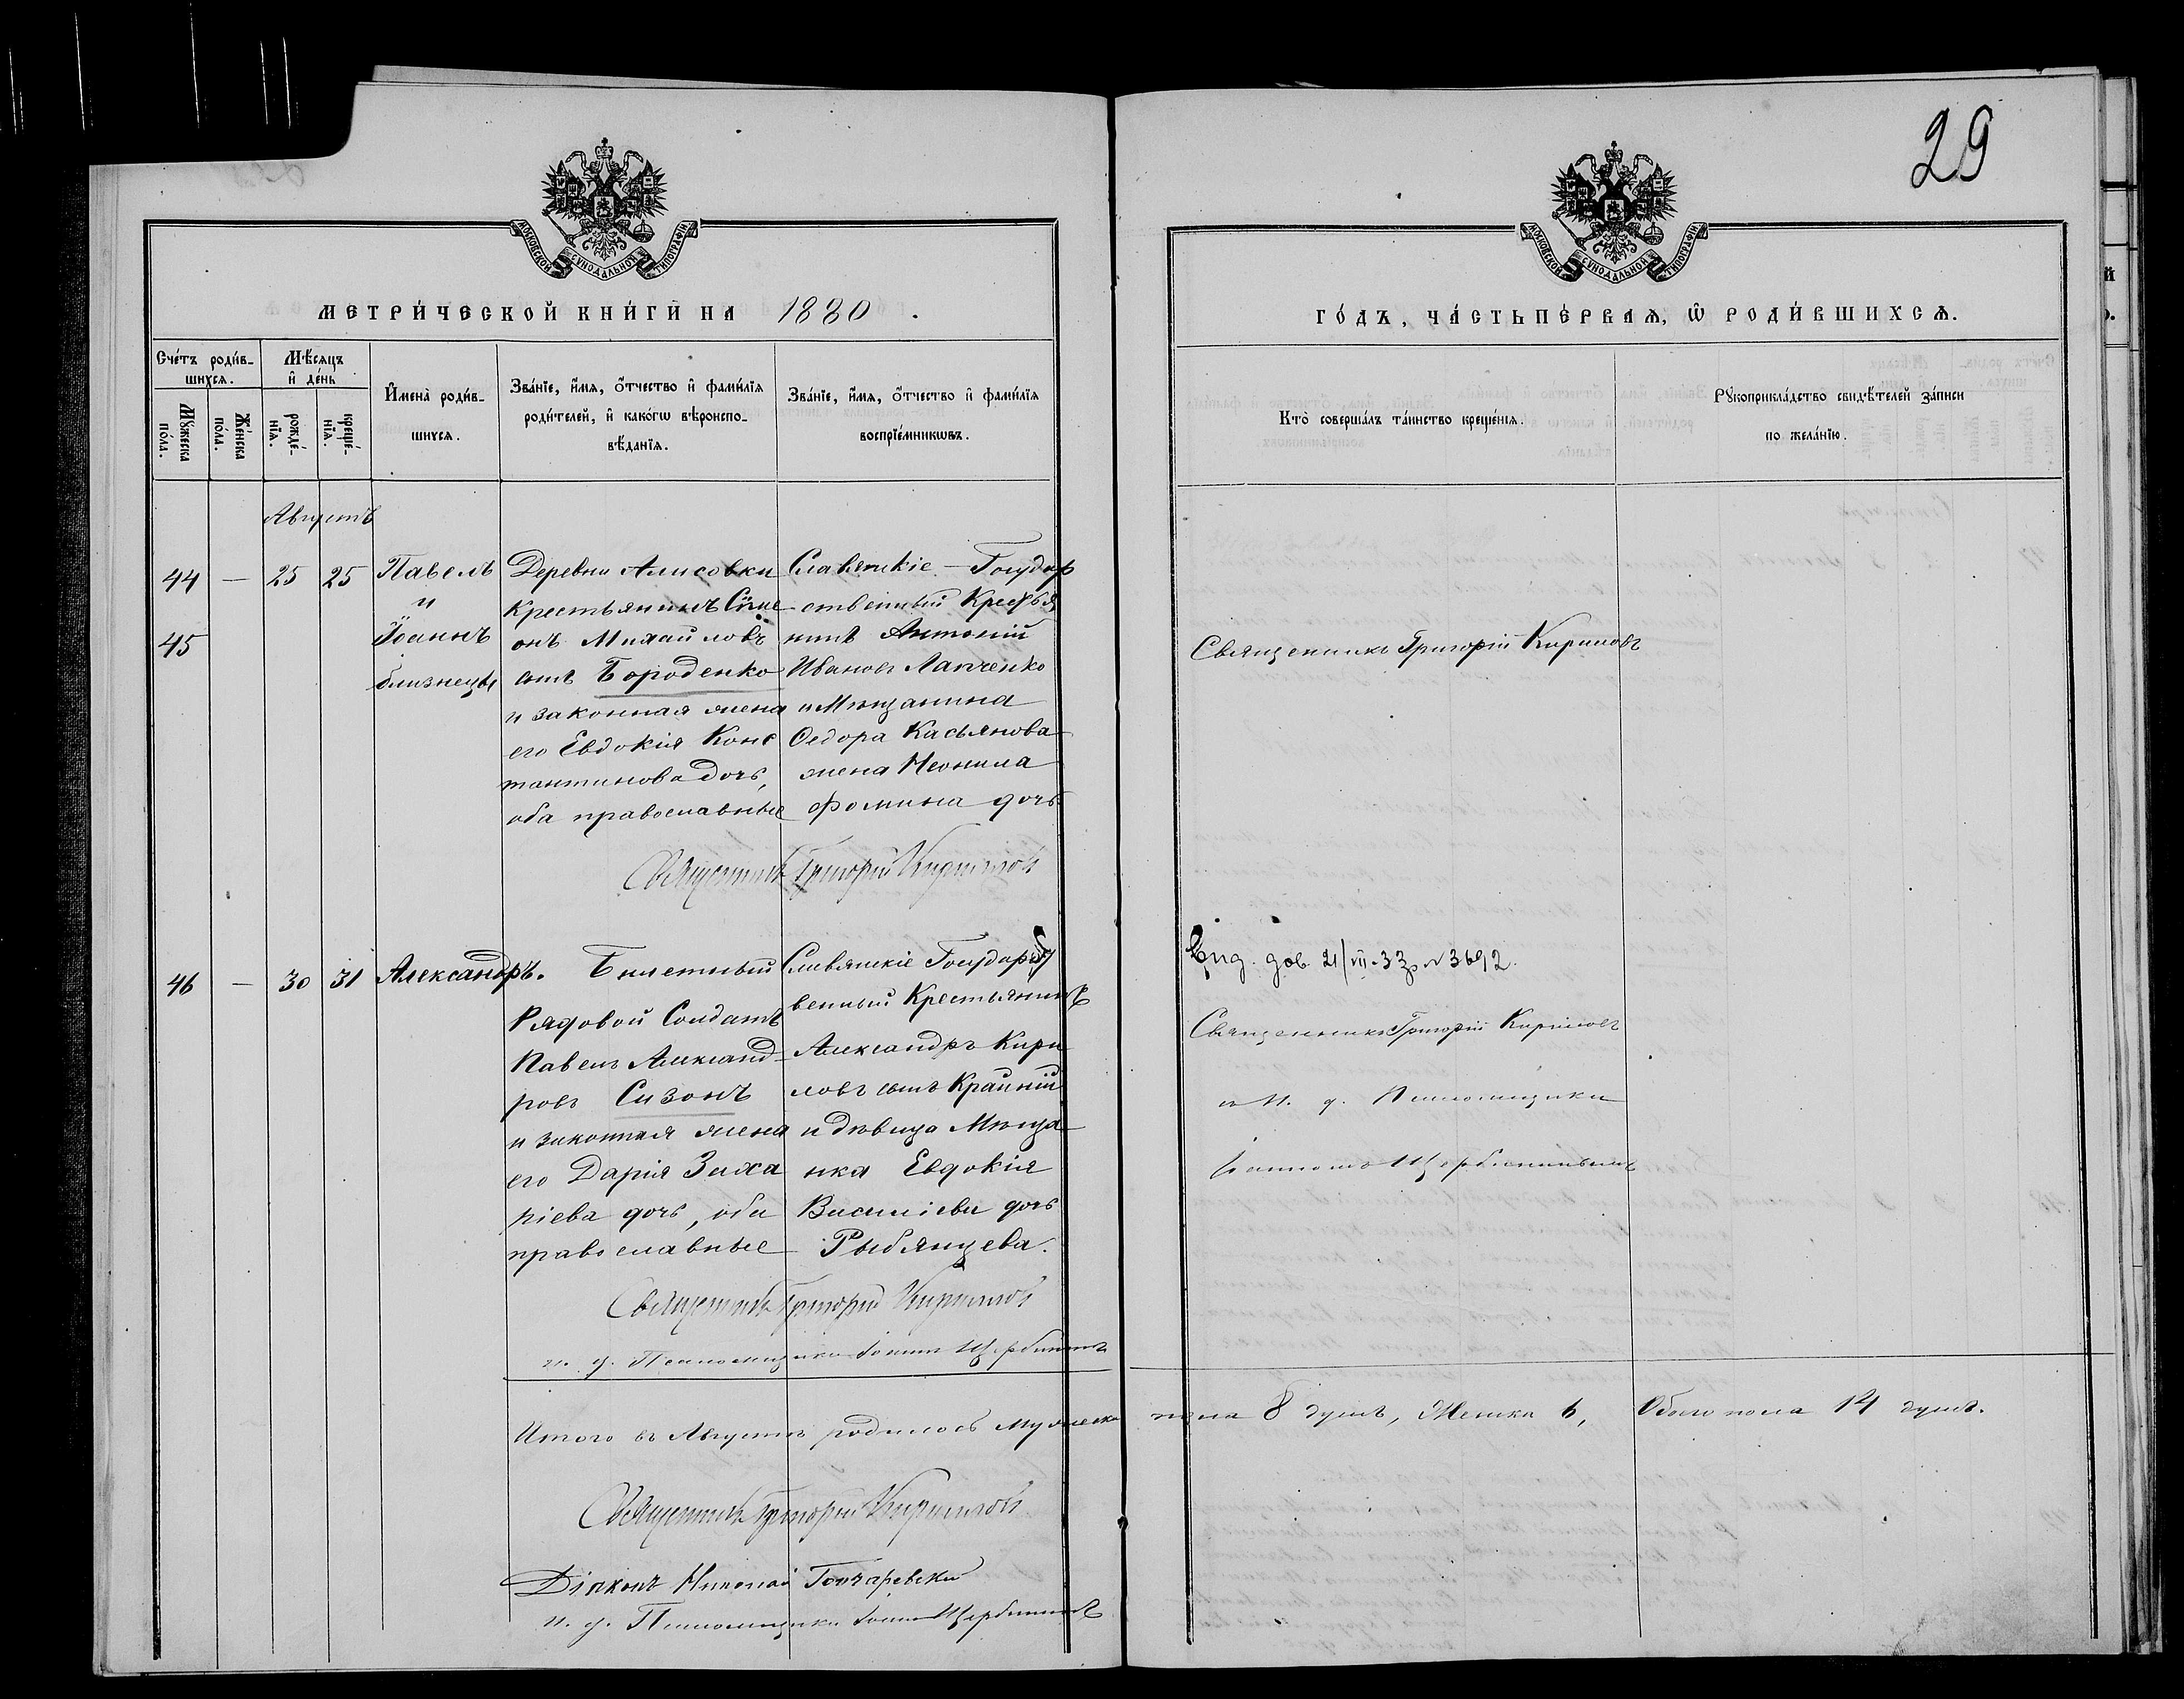 29
МОСКОВСКОЙ СѴНОДАЛЬНОЙ ТИПОГРАФІИ
МОСКОВСКОЙ СѴНОДАЛЬНОЙ ТИПОГРАФІИ
МЕТРИ́ЧЕСКОЙ КНИ́ГИ НА 1880.
ГО́ДЪ, ЧА́СТЬ ПЕ́РВАѦ, Ѡ РОДИ́ВШИХСѦ.
Счéтъ роди́в-
шихся.
Мѣ́сяцъ
и҆ дéнь
Мꙋ́жеска
по́ла.
Же́нска
по́ла.
рожде́-
нїѧ.
креще́-
нїѧ.
И҆менà роди́в-
шихся.
Зва́нїе, и҆́мя, ѻ҆́тчество и҆ фами́лїя
роди́телей, и҆ како́гѡ вѣ́роиспо-
вѣ́данїя.
Зва́нїе, и҆́мя, ѻ҆́тчество и҆ фами́лїя
воспрїе́мникѡвъ.
Кто̀ соверша́лъ та́инство креще́нїя.
Рꙋкоприкла́дство свидѣ́телей за́писи
по жела́нїю.
Августъ
44 — 25 25 Павелъ
и
45 Іоаннъ
близнецы
Деревни Алисовки
Крестьянинъ Симе
онъ Михайловъ
сынъ Бороденко
и законная жена
его Евдокія Конс
тантинова дочь,
оба православные
Славянскіе – Государ
ственный Крестья
нинъ Антоній
Ивановъ Лапченко
и Мѣщанина
Ѳедора Касьянова
жена Неонила
Фомина дочь
Священникъ Григорій Кириловъ
Священникъ Григорій Кириловъ
46 — 30 31 Александръ.
Билетный
Рядовой Солдатъ
Павелъ Александ-
ровъ Сизонъ
и законная жена
его Дарія Заха
ріева дочь, оба
православные
Славянскіе Государст
венный Крестьянинъ
Александръ Кири
ловъ сынъ Крайній
и дѣвица Мѣща
нка Евдокія
Василіева дочь
Рыбянцева.
Вид. дов. 21/VII-33 р № 3692.
Священникъ Григорій Кириловъ
и И. д. Псаломщика
Іоанномъ Щербининымъ
Священникъ Григорій Кириловъ
и. д. Псаломщика Іоаннъ Щербининъ
Итого въ Августѣ родилось мужеска пола 8 душъ, Женска 6, Обоего пола 14 душъ.
Священникъ Григорій Кириловъ
Діаконъ Николай Гончаревскій
и. д. Псаломщика Іоаннъ Щербининъ